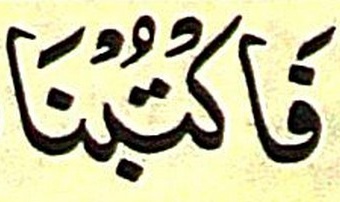 فَاكْتُبْنَا